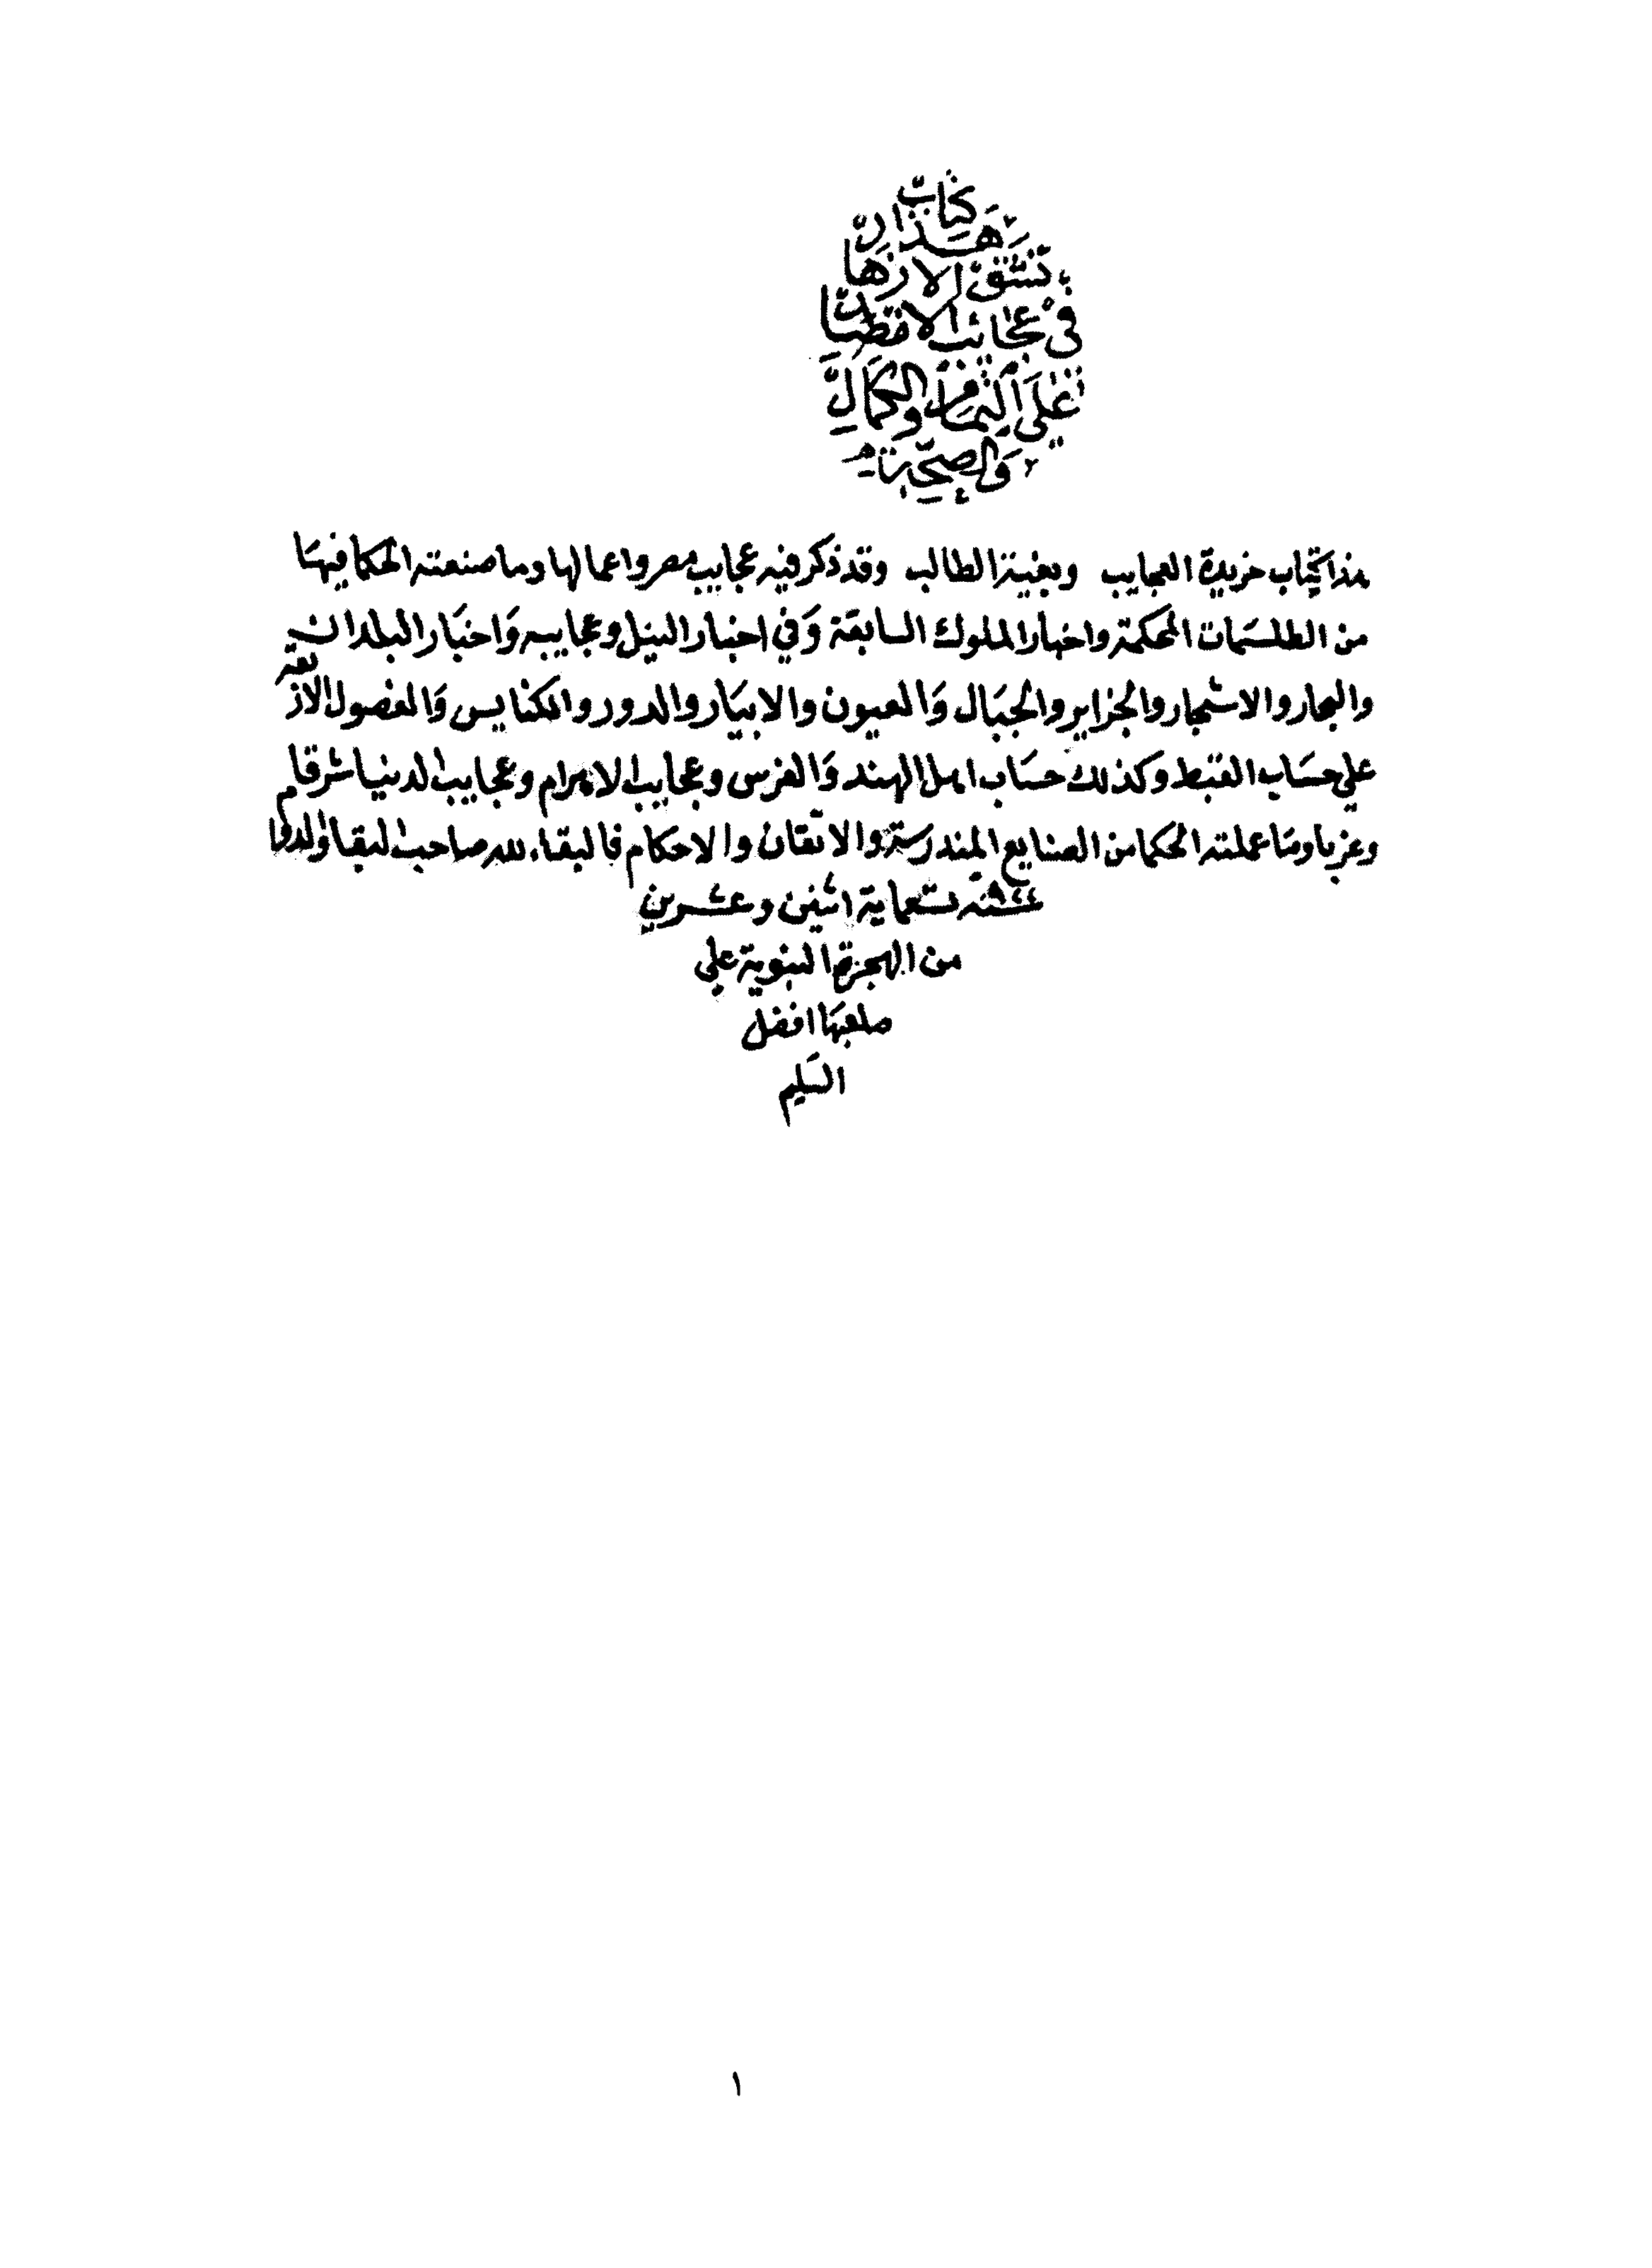 كتاب
هذا
نشق الازهار
في عجايب الاقطار
على التمام والكمال
والصحة
هذا كتاب خريدة العجايب وبغية الطالب وقد ذكر فيه عجايب مصر واعمالها وما صنعته الحكما فيها
من الطلسمات المحكمة واخبار الملوك السابقة وفي اخبار النيل وعجايبه واخبار البلدان
والبحار والاشجار والجزاير والجبال والعيون والابيار والدور والكنايس والفصول الاربعة
على حساب القبط وكذلك حساب اهل الهند والفرس وعجايب الاهرام وعجايب الدنيا شرقا
وغربا وما عملته الحكما من الصنايع المندرسة والاتقان والاحكام فالبقاء لله صاحب البقا والدوام
٩٢٢ سنة تسعماية اثنين وعشرين
من الهجرة النبوية على
صاحبها افضل
التسليم
١